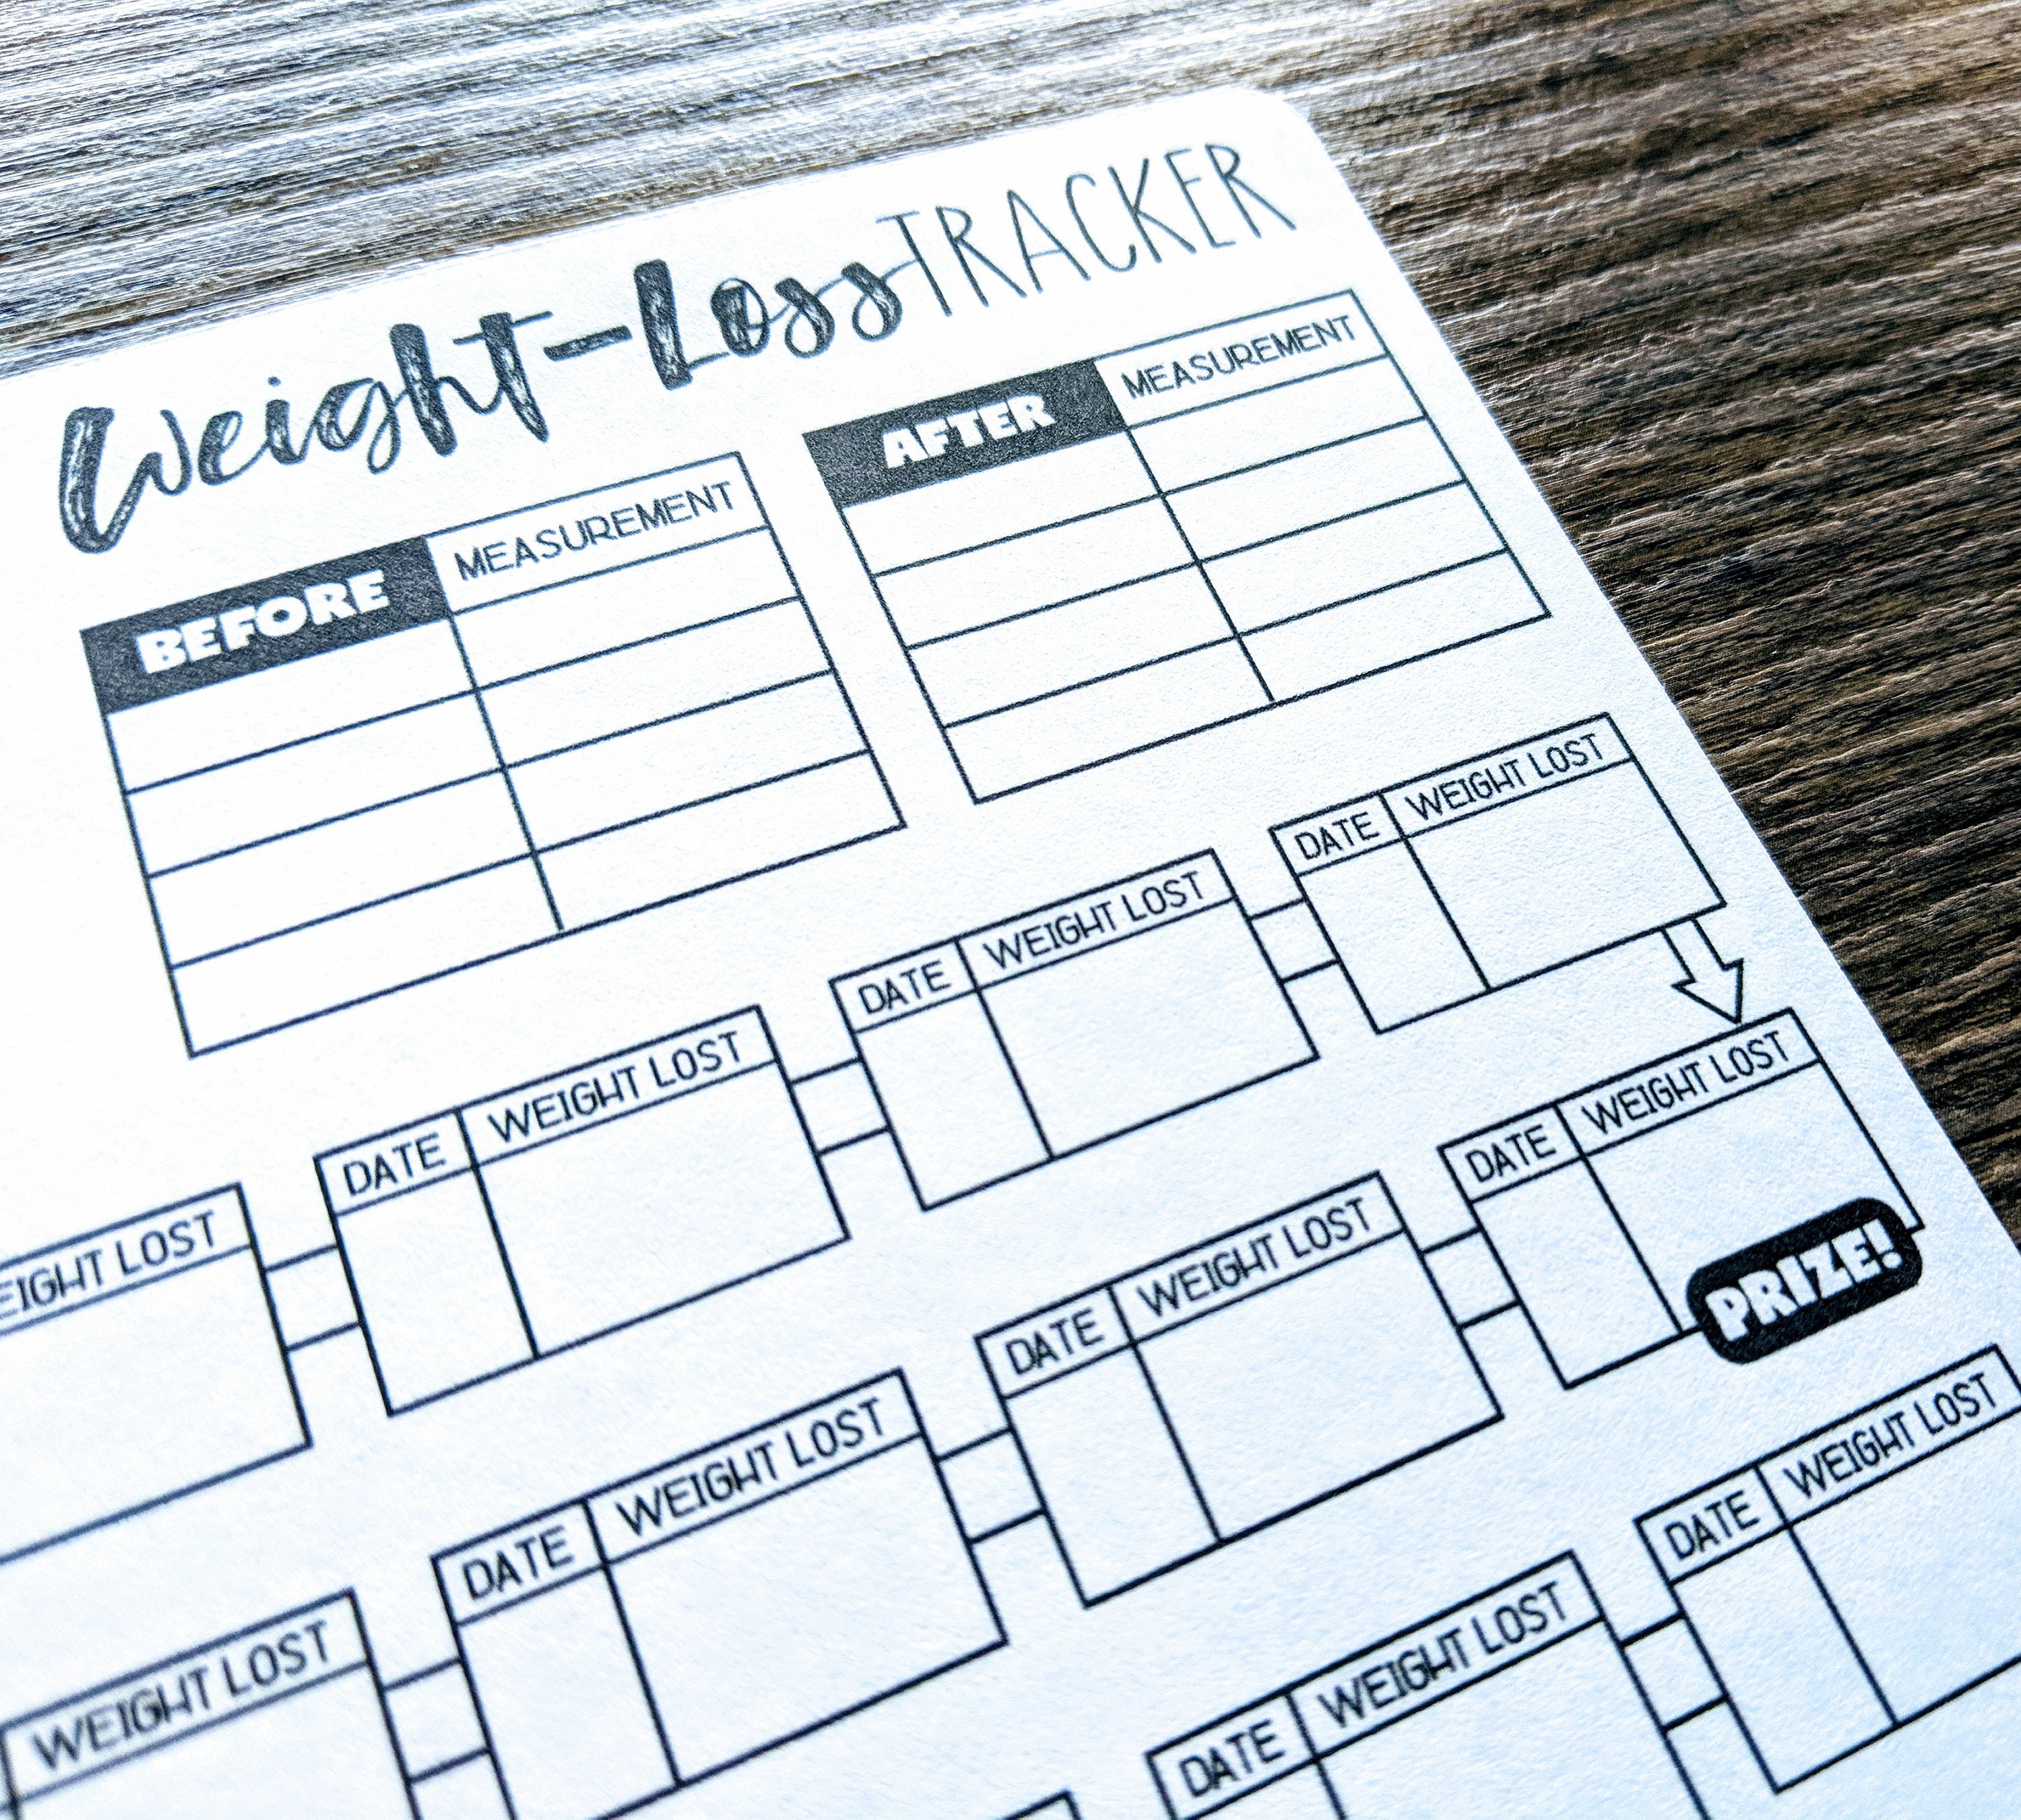 Weight-Loss TRACKER
BEFORE MEASUREMENT
AFTER MEASUREMENT
WEIGHT LOST
DATE WEIGHT LOST
DATE WEIGHT LOST
DATE WEIGHT LOST
WEIGHT LOST
DATE WEIGHT LOST
DATE WEIGHT LOST
DATE WEIGHT LOST
PRIZE!
DATE WEIGHT LOST
DATE WEIGHT LOST